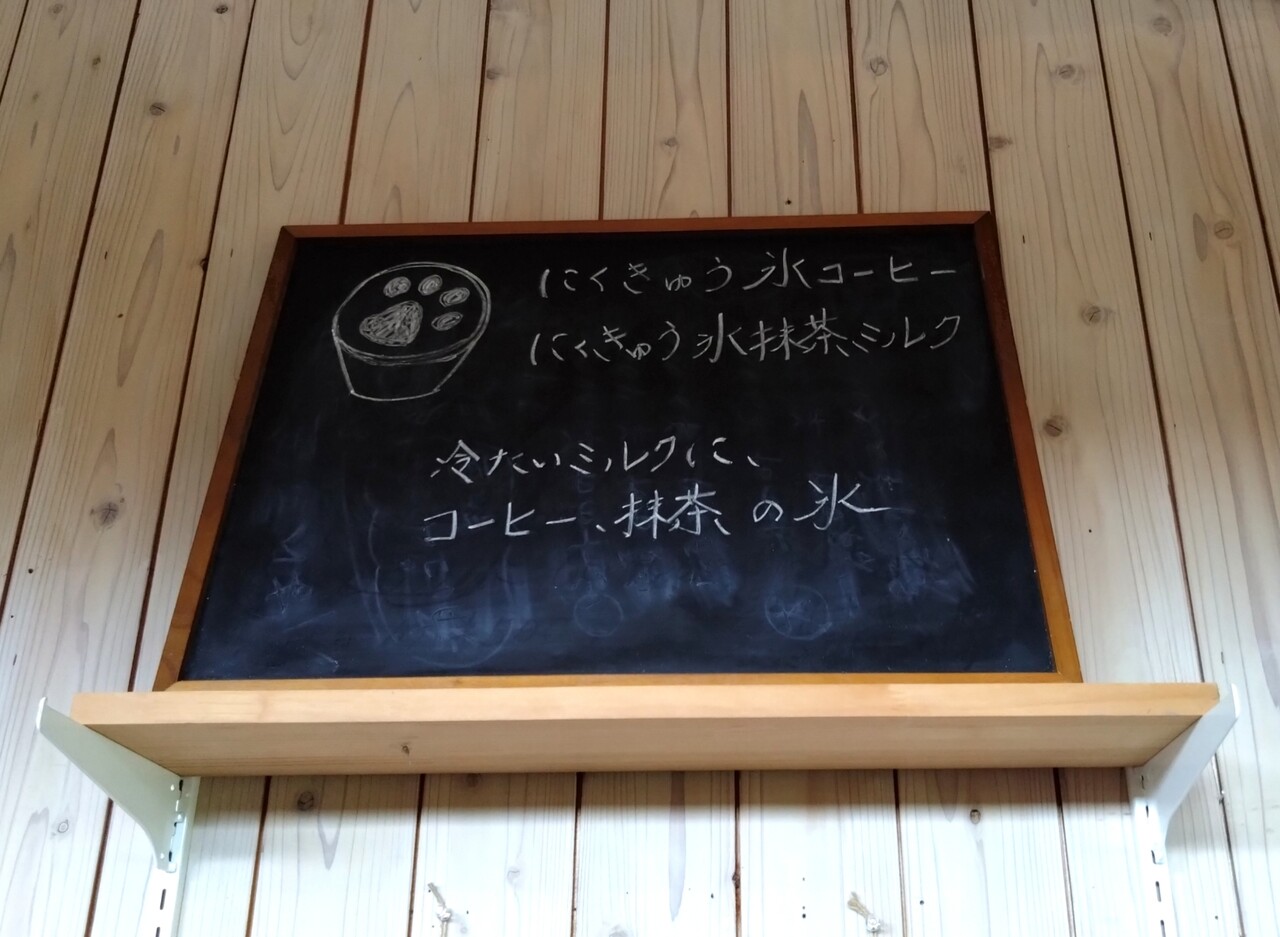 にくきゅう氷コーヒー
にくきゅう氷抹茶ミルク
冷たいミルクに、
コーヒー、抹茶の氷